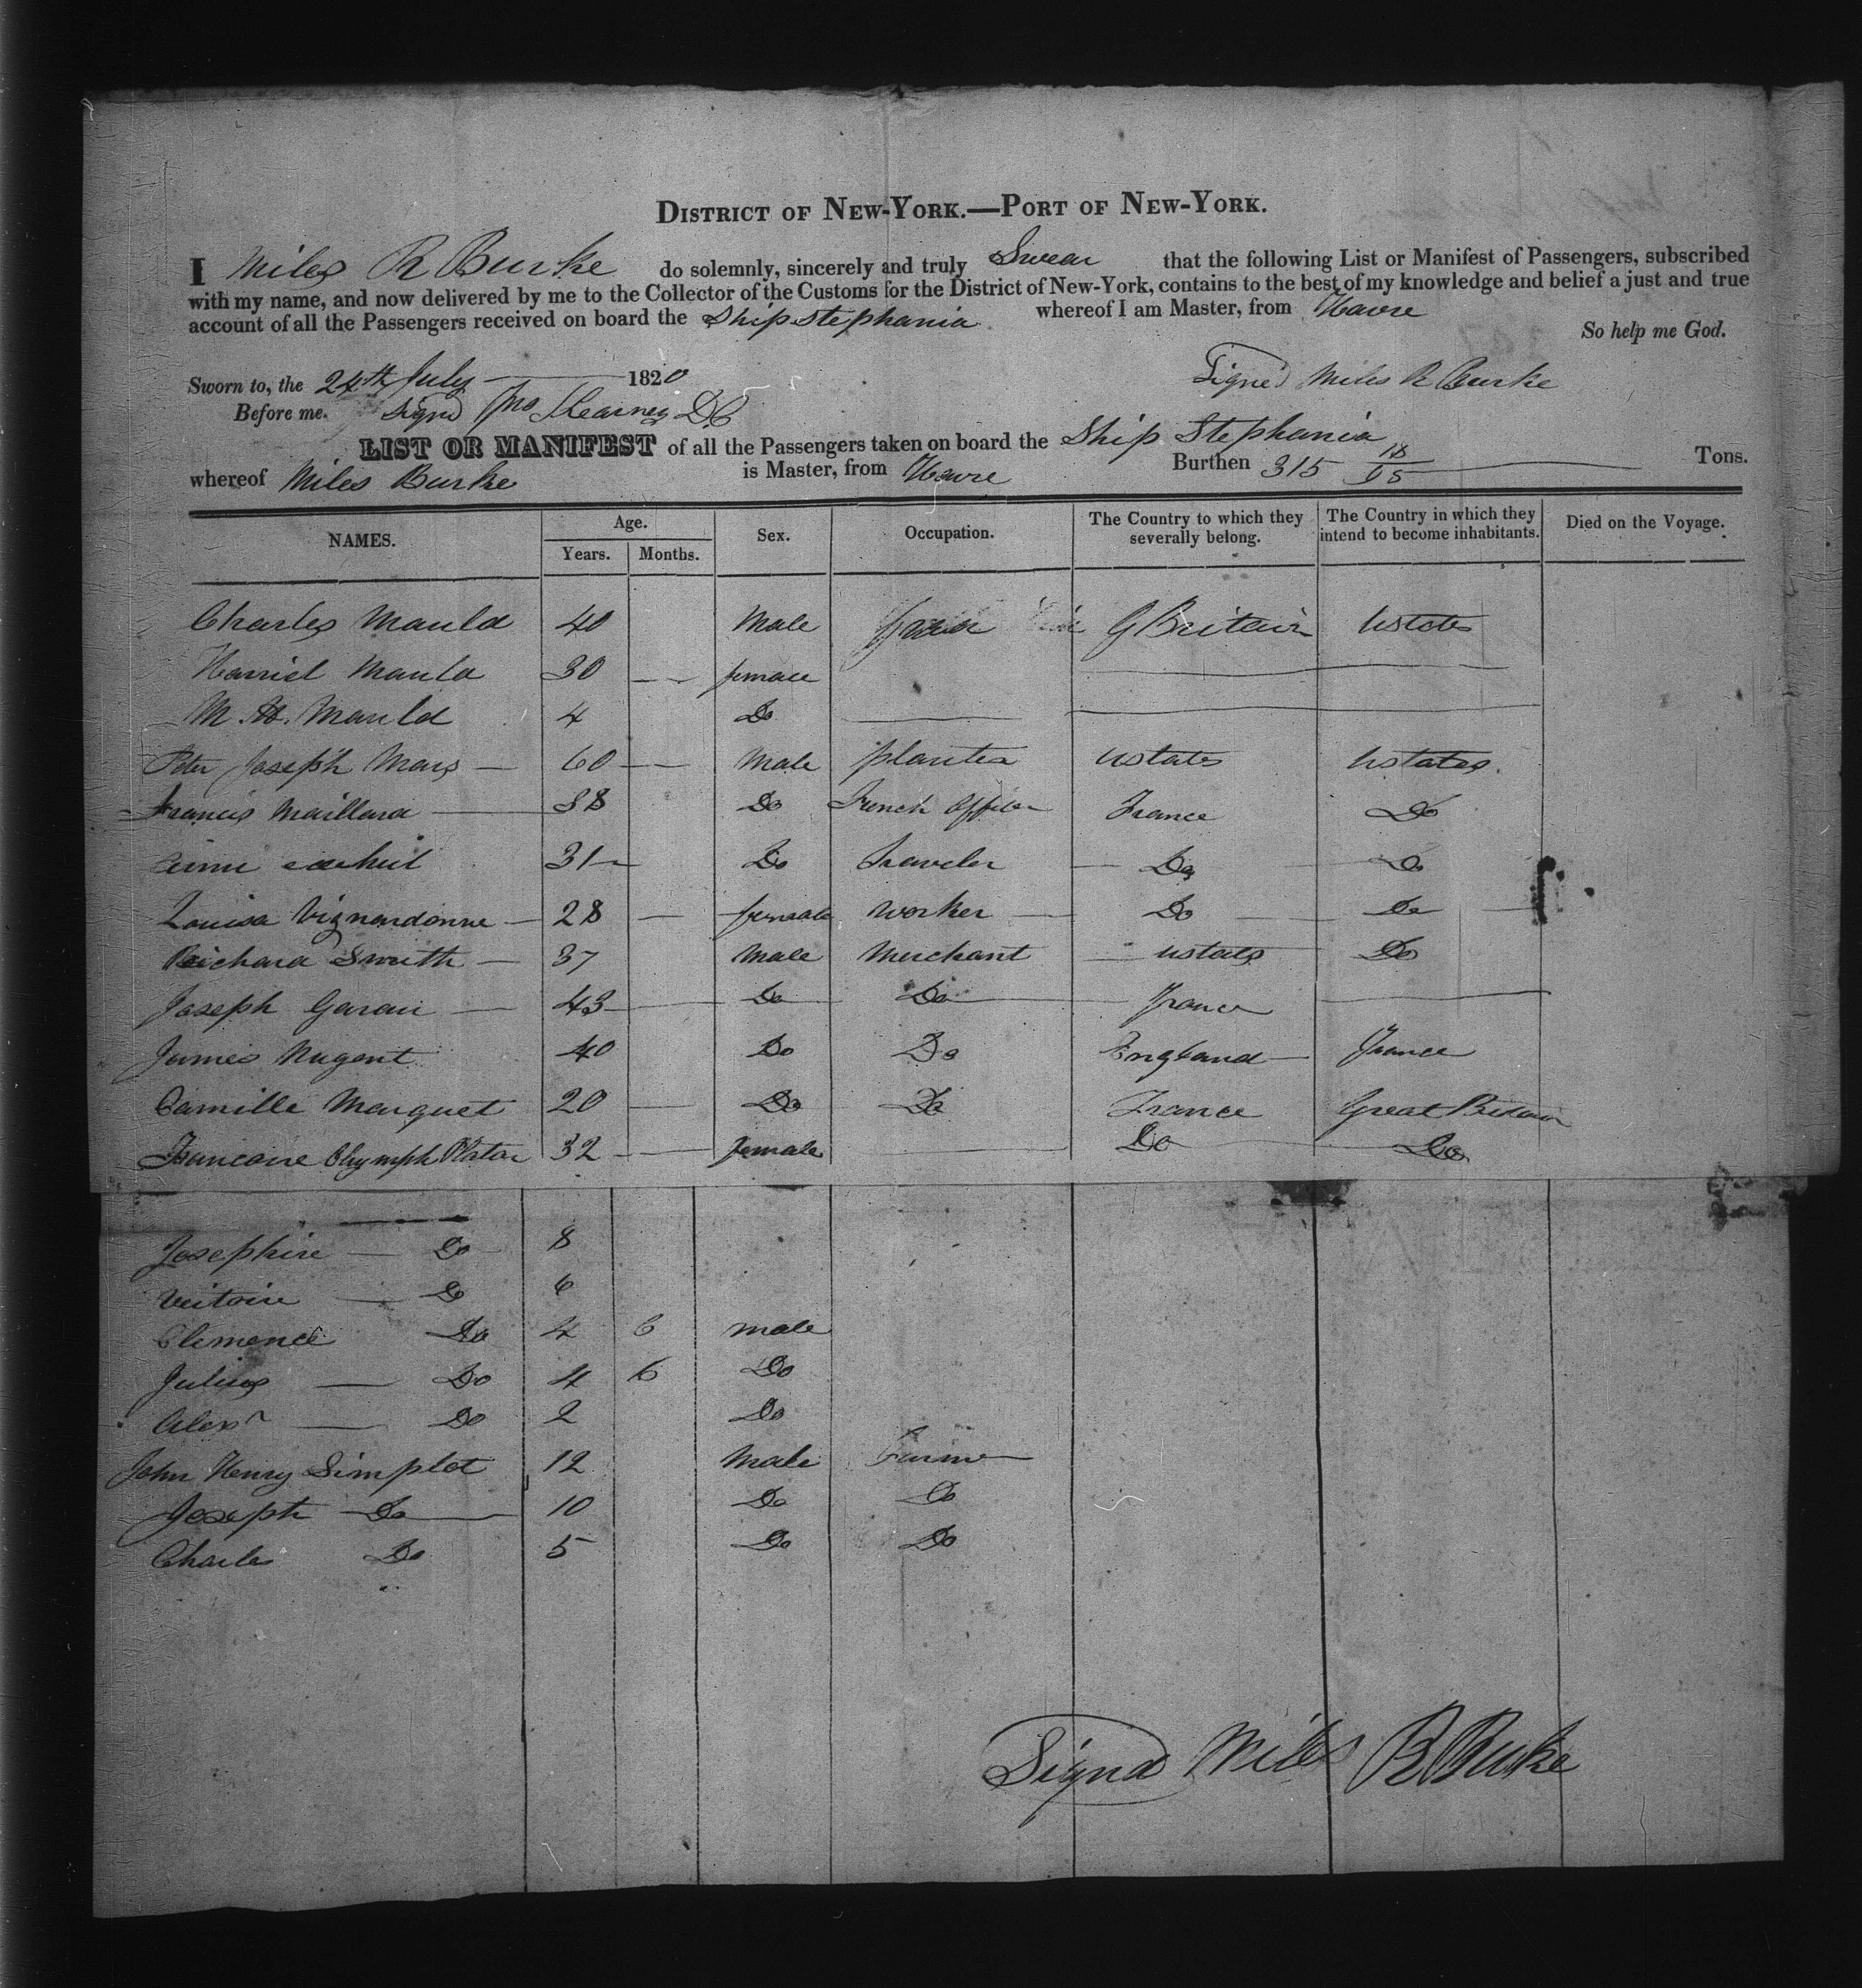 DISTRICT OF NEW-YORK.—PORT OF NEW-YORK.
I Miles R Burke do solemnly, sincerely and truly Swear that the following List or Manifest of Passengers, subscribed
with my name, and now delivered by me to the Collector of the Customs for the District of New-York, contains to the best of my knowledge and belief a just and true
account of all the Passengers received on board the Ship Stephania whereof I am Master, from Havre
So help me God.
Sworn to, the 24th July 1820 Signed Miles R Burke
Before me. Signd Jno Kearney DC
LIST OR MANIFEST of all the Passengers taken on board the Ship Stephania
whereof Miles Burke is Master, from Havre Burthen 315 18/95 Tons.
NAMES. Age. Years. Months. Sex. Occupation. The Country to which they severally belong. The Country in which they intend to become inhabitants. Died on the Voyage.
Charles Mauld 40 Male G Britain Ustates
Harriet Mauld 30 female
M. H. Mauld 4 Do
Peter Joseph Mars 60 Male planter Ustates Ustates
Francis Maillard 38 Do French Officer France Do
31 Do Traveler Do Do
Louisa 28 female worker Do Do
Richard Smith 37 Male Merchant Ustates Do
Joseph Garau 43 Do Do France
James Nugent 40 Do Do England France
Camille Marquet 20 Do Do France Great Britain
32 female Do Do
Josephine Do 8
Victoire Do 6
Clemence Do 4 6 male
Julius Do 4 6 Do
Alexr Do 2 Do
John Henry Simplot 12 Male Farmer
Joseph Do 10 Do Do
Charles Do 5 Do Do
Signd Miles R Burke